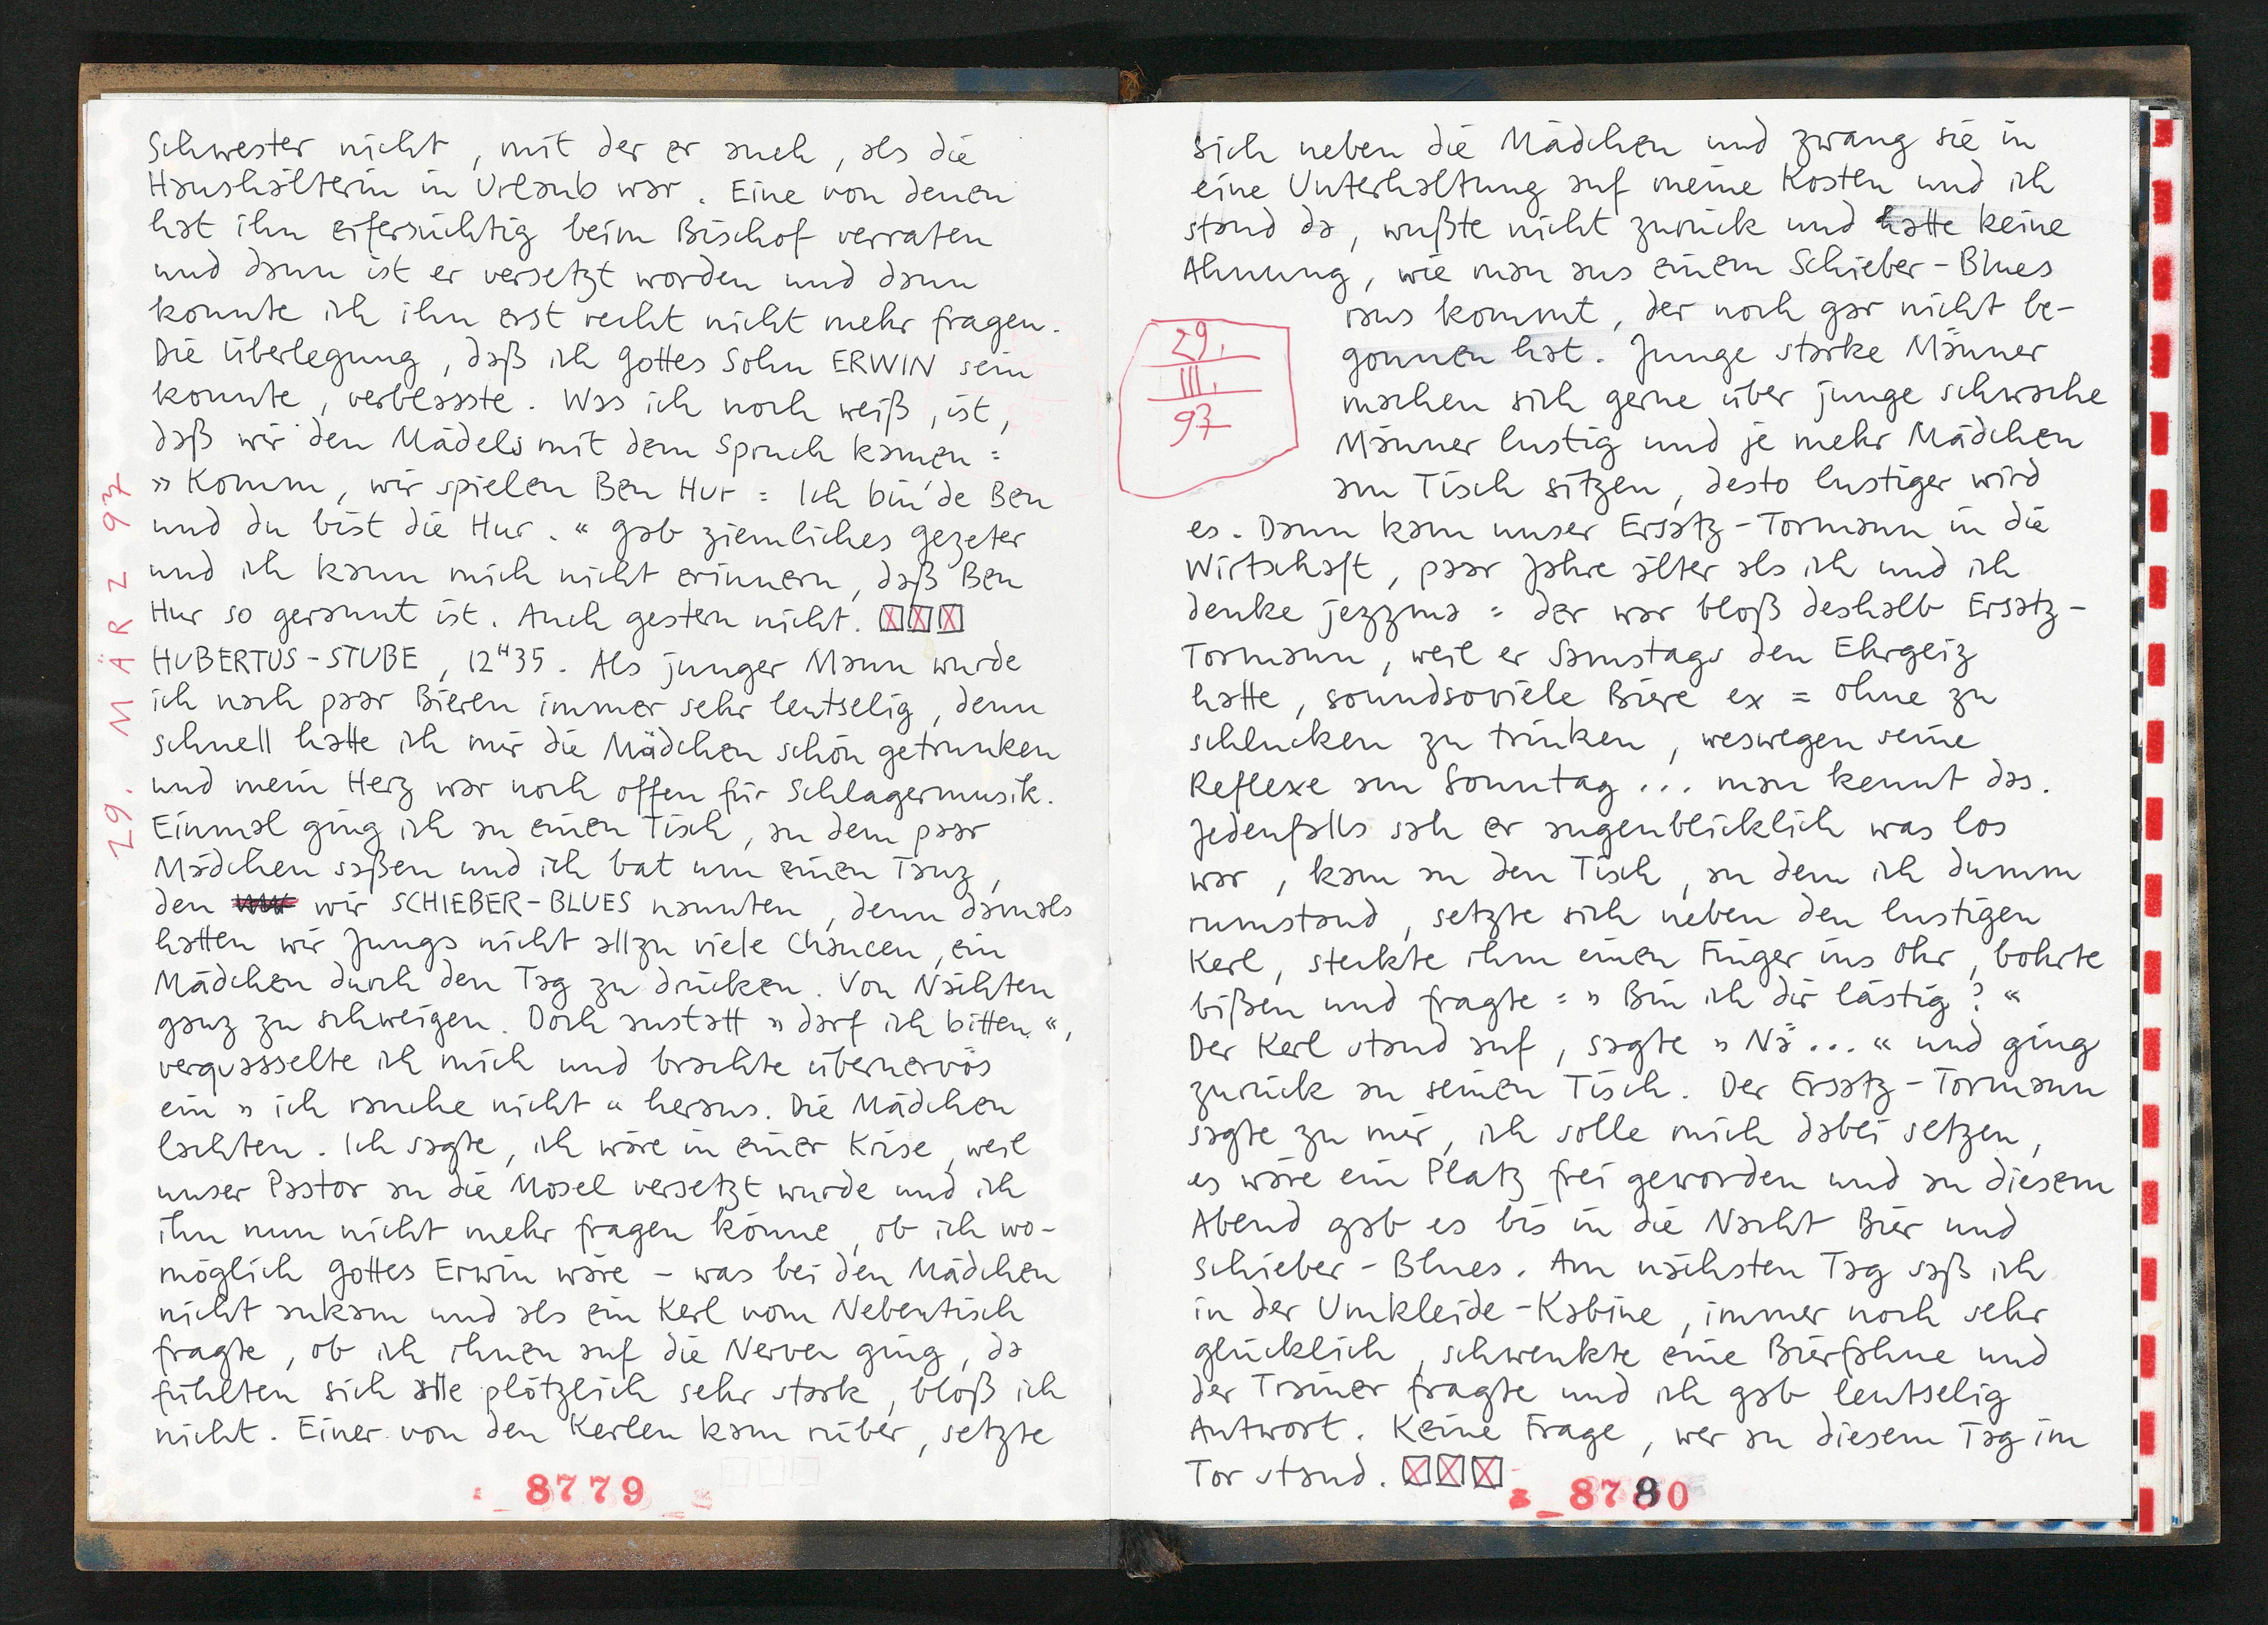 Schwester nicht, mit der er auch, als die
Haushälterin in Urlaub war. Eine von denen
hat ihn eifersüchtig beim Bischof verraten
und dann ist er versetzt worden und dann
konnte ich ihn erst recht nicht mehr fragen.
Die Überlegung, daß ich Gottes Sohn ERWIN sein
konnte, verblasste. Was ich noch weiß, ist,
daß wir den Mädels mit dem Spruch kamen:
»Komm, wir spielen Ben Hur: Ich bin de Ben
und du bist die Hur.« Gab ziemliches Gezeter
und ich kann mich nicht erinnern, daß Ben
Hur so gerannt ist. Auch gestern nicht.
HUBERTUS-STUBE, 12H35. Als junger Mann wurde
ich nach paar Bieren immer sehr leutselig, denn
schnell hatte ich mir die Mädchen schön getrunken
und mein Herz war noch offen für Schlagermusik.
Einmal ging ich an einen Tisch, an dem paar
Mädchen saßen und ich bat um einen Tanz,
den wir SCHIEBER-BLUES nannten, denn damals
hatten wir Jungs nicht allzu viele Chancen, ein
Mädchen durch den Tag zu drücken. Von Nächten
ganz zu schweigen. Doch anstatt »darf ich bitten«,
verquasselte ich mich und brachte übernervös
ein »ich rauche nicht« heraus. Die Mädchen
lachten. Ich sagte, ich wäre in einer Krise, weil
unser Pastor an die Mosel versetzt wurde und ich
ihn nun nicht mehr fragen könne, ob ich wo-
möglich Gottes Erwin wäre – was bei den Mädchen
nicht ankam und als ein Kerl vom Nebentisch
fragte, ob ich ihnen auf die Nerven ging, da
fühlten sich alle plötzlich sehr stark, bloß ich
nicht. Einer von den Kerlen kam rüber, setzte
29. MÄRZ 97
8779
sich neben die Mädchen und zwang sie in
eine Unterhaltung auf meine Kosten und ich
stand da, wußte nicht zurück und hatte keine
Ahnung, wie man aus einem Schieber-Blues
raus kommt, der noch gar nicht be-
gonnen hat. Junge starke Männer
machen sich gerne über junge schwache
Männer lustig und je mehr Mädchen
am Tisch sitzen, desto lustiger wird
29.
III.
97
es. Dann kam unser Ersatz-Tormann in die
Wirtschaft, paar Jahre älter als ich und ich
denke jezzma: der war bloß deshalb Ersatz-
Tormann, weil er Samstags den Ehrgeiz
hatte, soundsoviele Biere ex = ohne zu
schlucken zu trinken, weswegen seine
Reflexe am Sonntag... man kennt das.
Jedenfalls sah er augenblicklich was los
war, kam an den Tisch, an dem ich dumm
rumstand, setzte sich neben den lustigen
Kerl, steckte ihm einen Finger ins Ohr, bohrte
bißen und fragte: »Bin ich dir lästig?«
Der Kerl stand auf, sagte »Nä...« und ging
zurück an seinen Tisch. Der Ersatz-Tormann
sagte zu mir, ich solle mich dabei setzen,
es wäre ein Platz frei geworden und an diesem
Abend gab es bis in die Nacht Bier und
Schieber-Blues. Am nächsten Tag saß ich
in der Umkleide-Kabine, immer noch sehr
glücklich, schwenkte eine Bierfahne und
der Trainer fragte und ich gab leutselig
Antwort. Keine Frage, wer an diesem Tag im
Tor stand.
8780